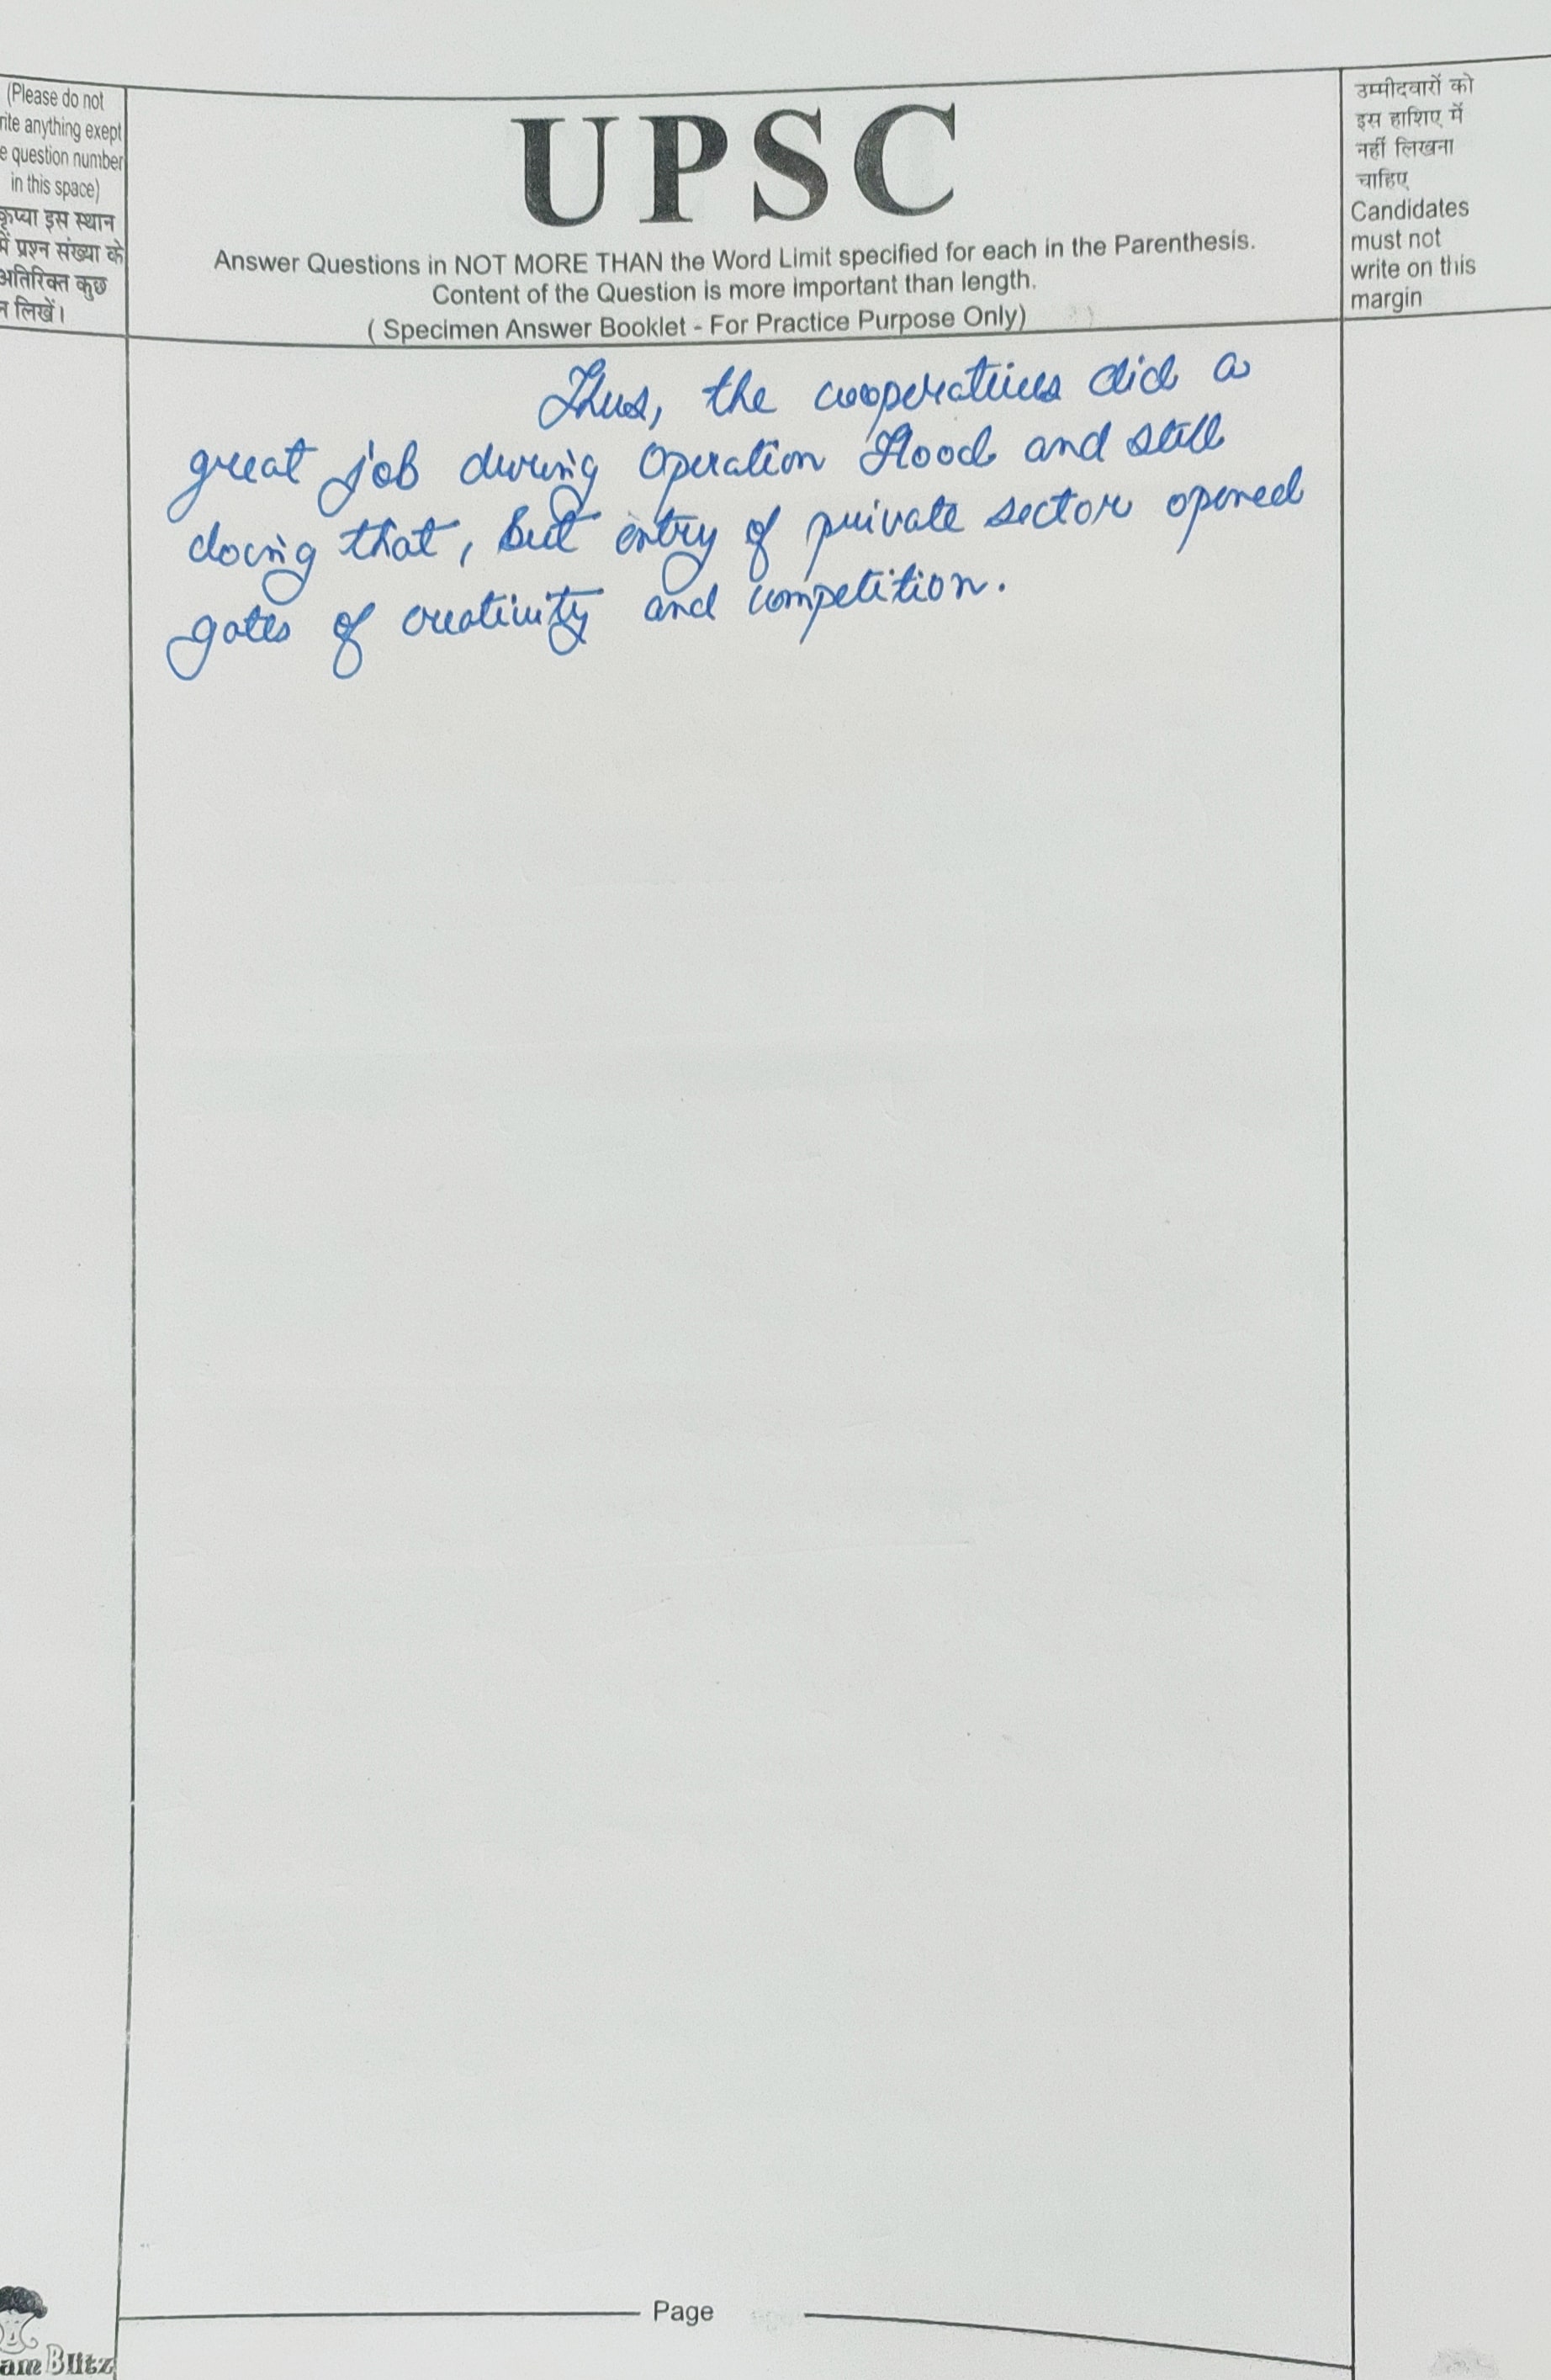 (Please do not
rite anything exept
e question number
in this space)
कृप्या इस स्थान
में प्रश्न संख्या के
अतिरिक्त कुछ
न लिखें।
UPSC
Answer Questions in NOT MORE THAN the Word Limit specified for each in the Parenthesis.
Content of the Question is more important than length.
( Specimen Answer Booklet - For Practice Purpose Only)
उम्मीदवारों को
इस हाशिए में
नहीं लिखना
चाहिए
Candidates
must not
write on this
margin
Thus, the cooperatives did a
great job during Operation Flood and still
doing that, but entry of private sector opened
gates of creativity and competition.
Page
am Blitz